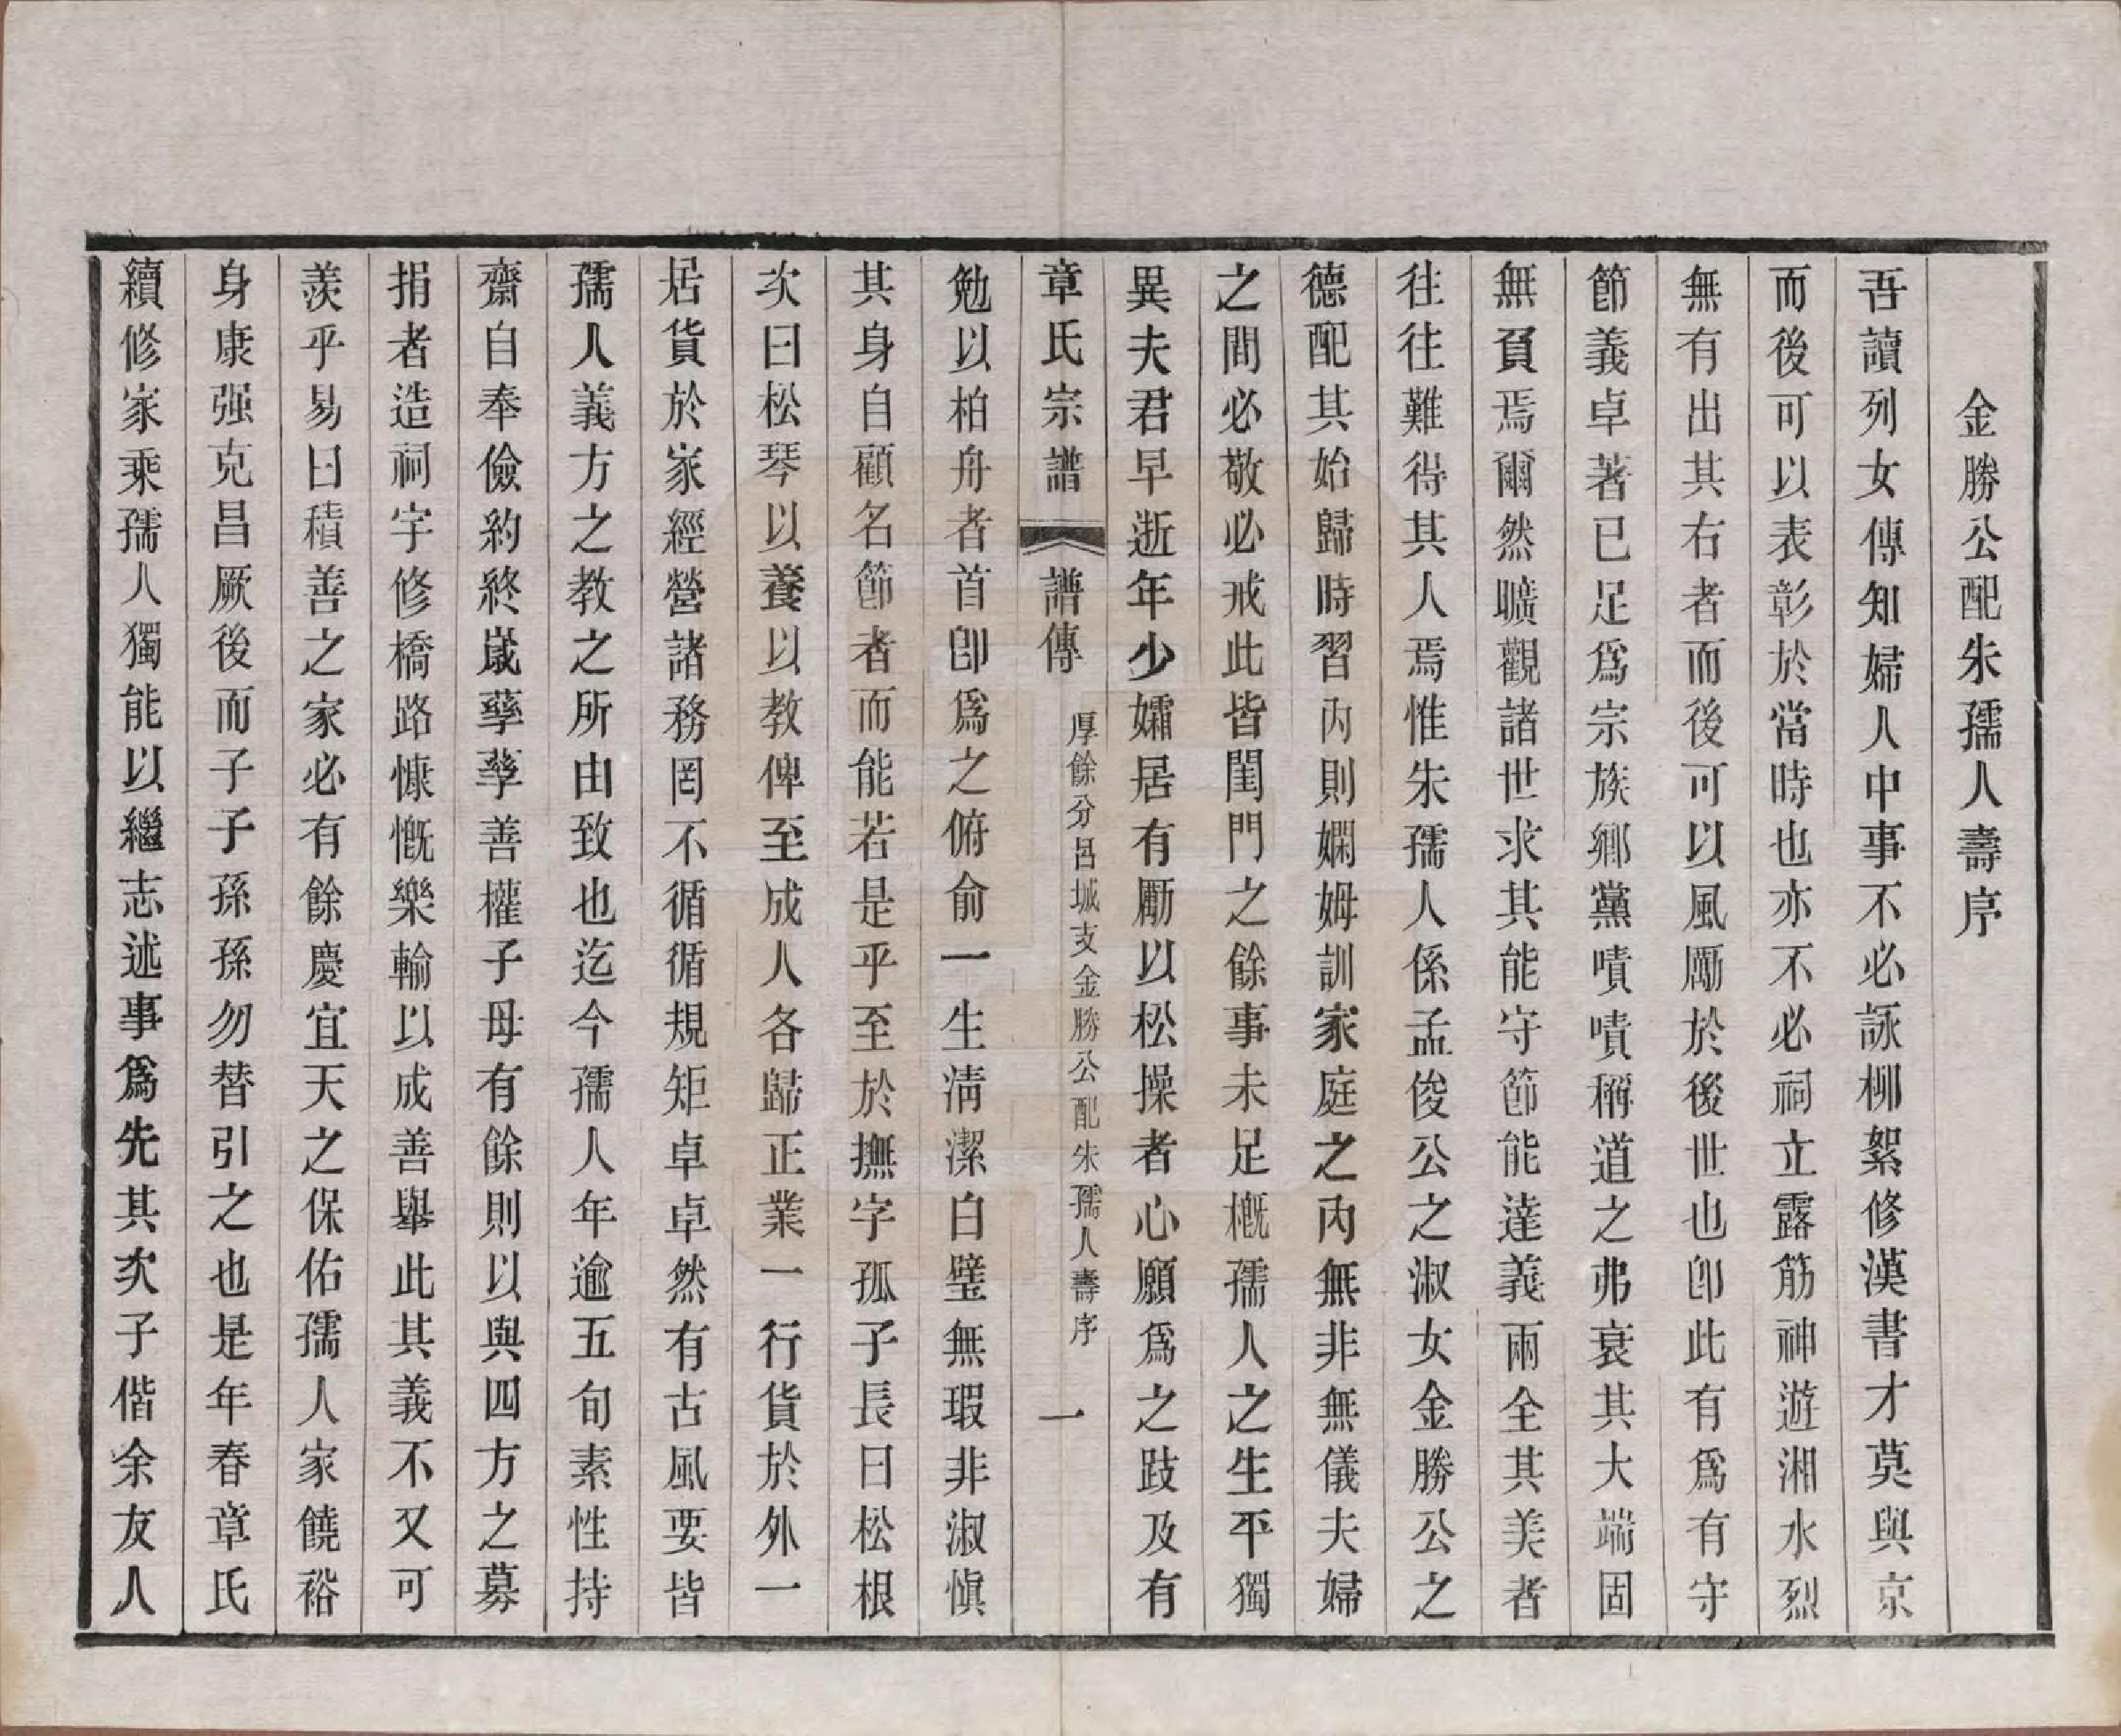 金勝公配朱孺人壽序
吾讀列女傳知婦人中事不必詠柳絮修漢書才莫與京
而後可以表彰於當時也亦不必祠立露筋神遊湘水烈
無有出其右者而後可以風勵於後世也卽此有爲有守
節義卓著已足爲宗族鄉黨嘖嘖稱道之弗衰其大端固
無負焉爾然曠觀諸世求其能守節能達義兩全其美者
往往難得其人焉惟朱孺人係孟俊公之淑女金勝公之
德配其始歸時習內則嫻姆訓家庭之內無非無儀夫婦
之間必敬必戒此皆閨門之餘事未足概孺人之生平獨
異夫君早逝年少孀居有勵以松操者心願爲之跂及有
章氏宗譜 譜傳 厚餘分呂城支金勝公配朱孺人壽序 一
勉以柏舟者首卽爲之俯俞一生淸潔白璧無瑕非淑愼
其身自顧名節者而能若是乎至於撫字孤子長曰松根
次曰松琴以養以教俾至成人各歸正業一行貨於外一
居貨於家經營諸務罔不循循規矩卓卓然有古風要皆
孺人義方之教之所由致也迄今孺人年逾五旬素性持
齋自奉儉約終嵗孳孳善權子母有餘則以與四方之募
捐者造祠宇修橋路慷慨樂輸以成善舉此其義不又可
羨乎易曰積善之家必有餘慶宜天之保佑孺人家饒裕
身康强克昌厥後而子子孫孫勿替引之也是年春章氏
續修家乘孺人獨能以繼志述事爲先其次子偕余友人